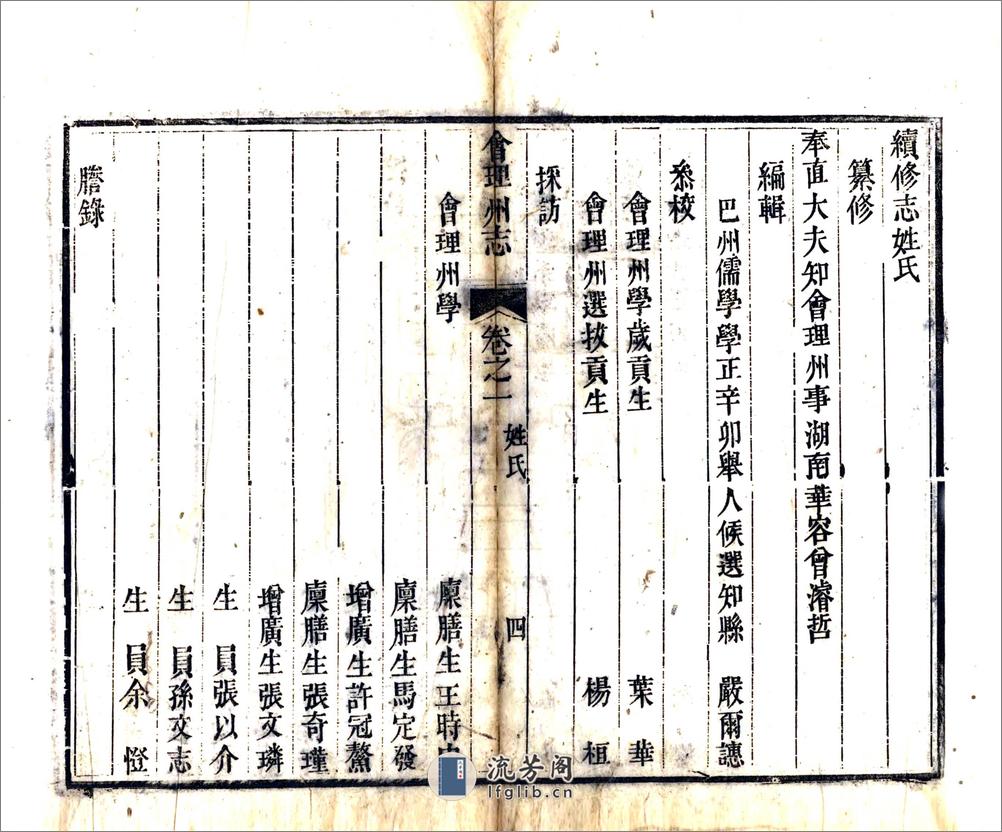 續修志姓氏
纂修
奉直大夫知會理州事湖南華容曾濬哲
編輯
巴州儒學學正辛卯舉人候選知縣 嚴爾譓
叅校
會理州學歲貢生 葉華
會理州選拔貢生 楊桓
採訪
會理州志 卷之一 姓氏 四
會理州學 廩膳生王時
廩膳生馬定發
增廣生許冠鰲
廩膳生張奇瑾
增廣生張文璘
生員張以介
生員孫文志
生員余憕
謄錄
流芳阁
lfglib.cn